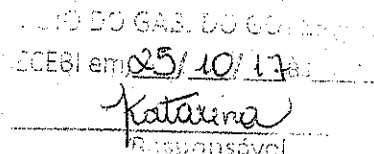 DO GAB. DO
CEBI em 25/10/17
Katarina
Responsável